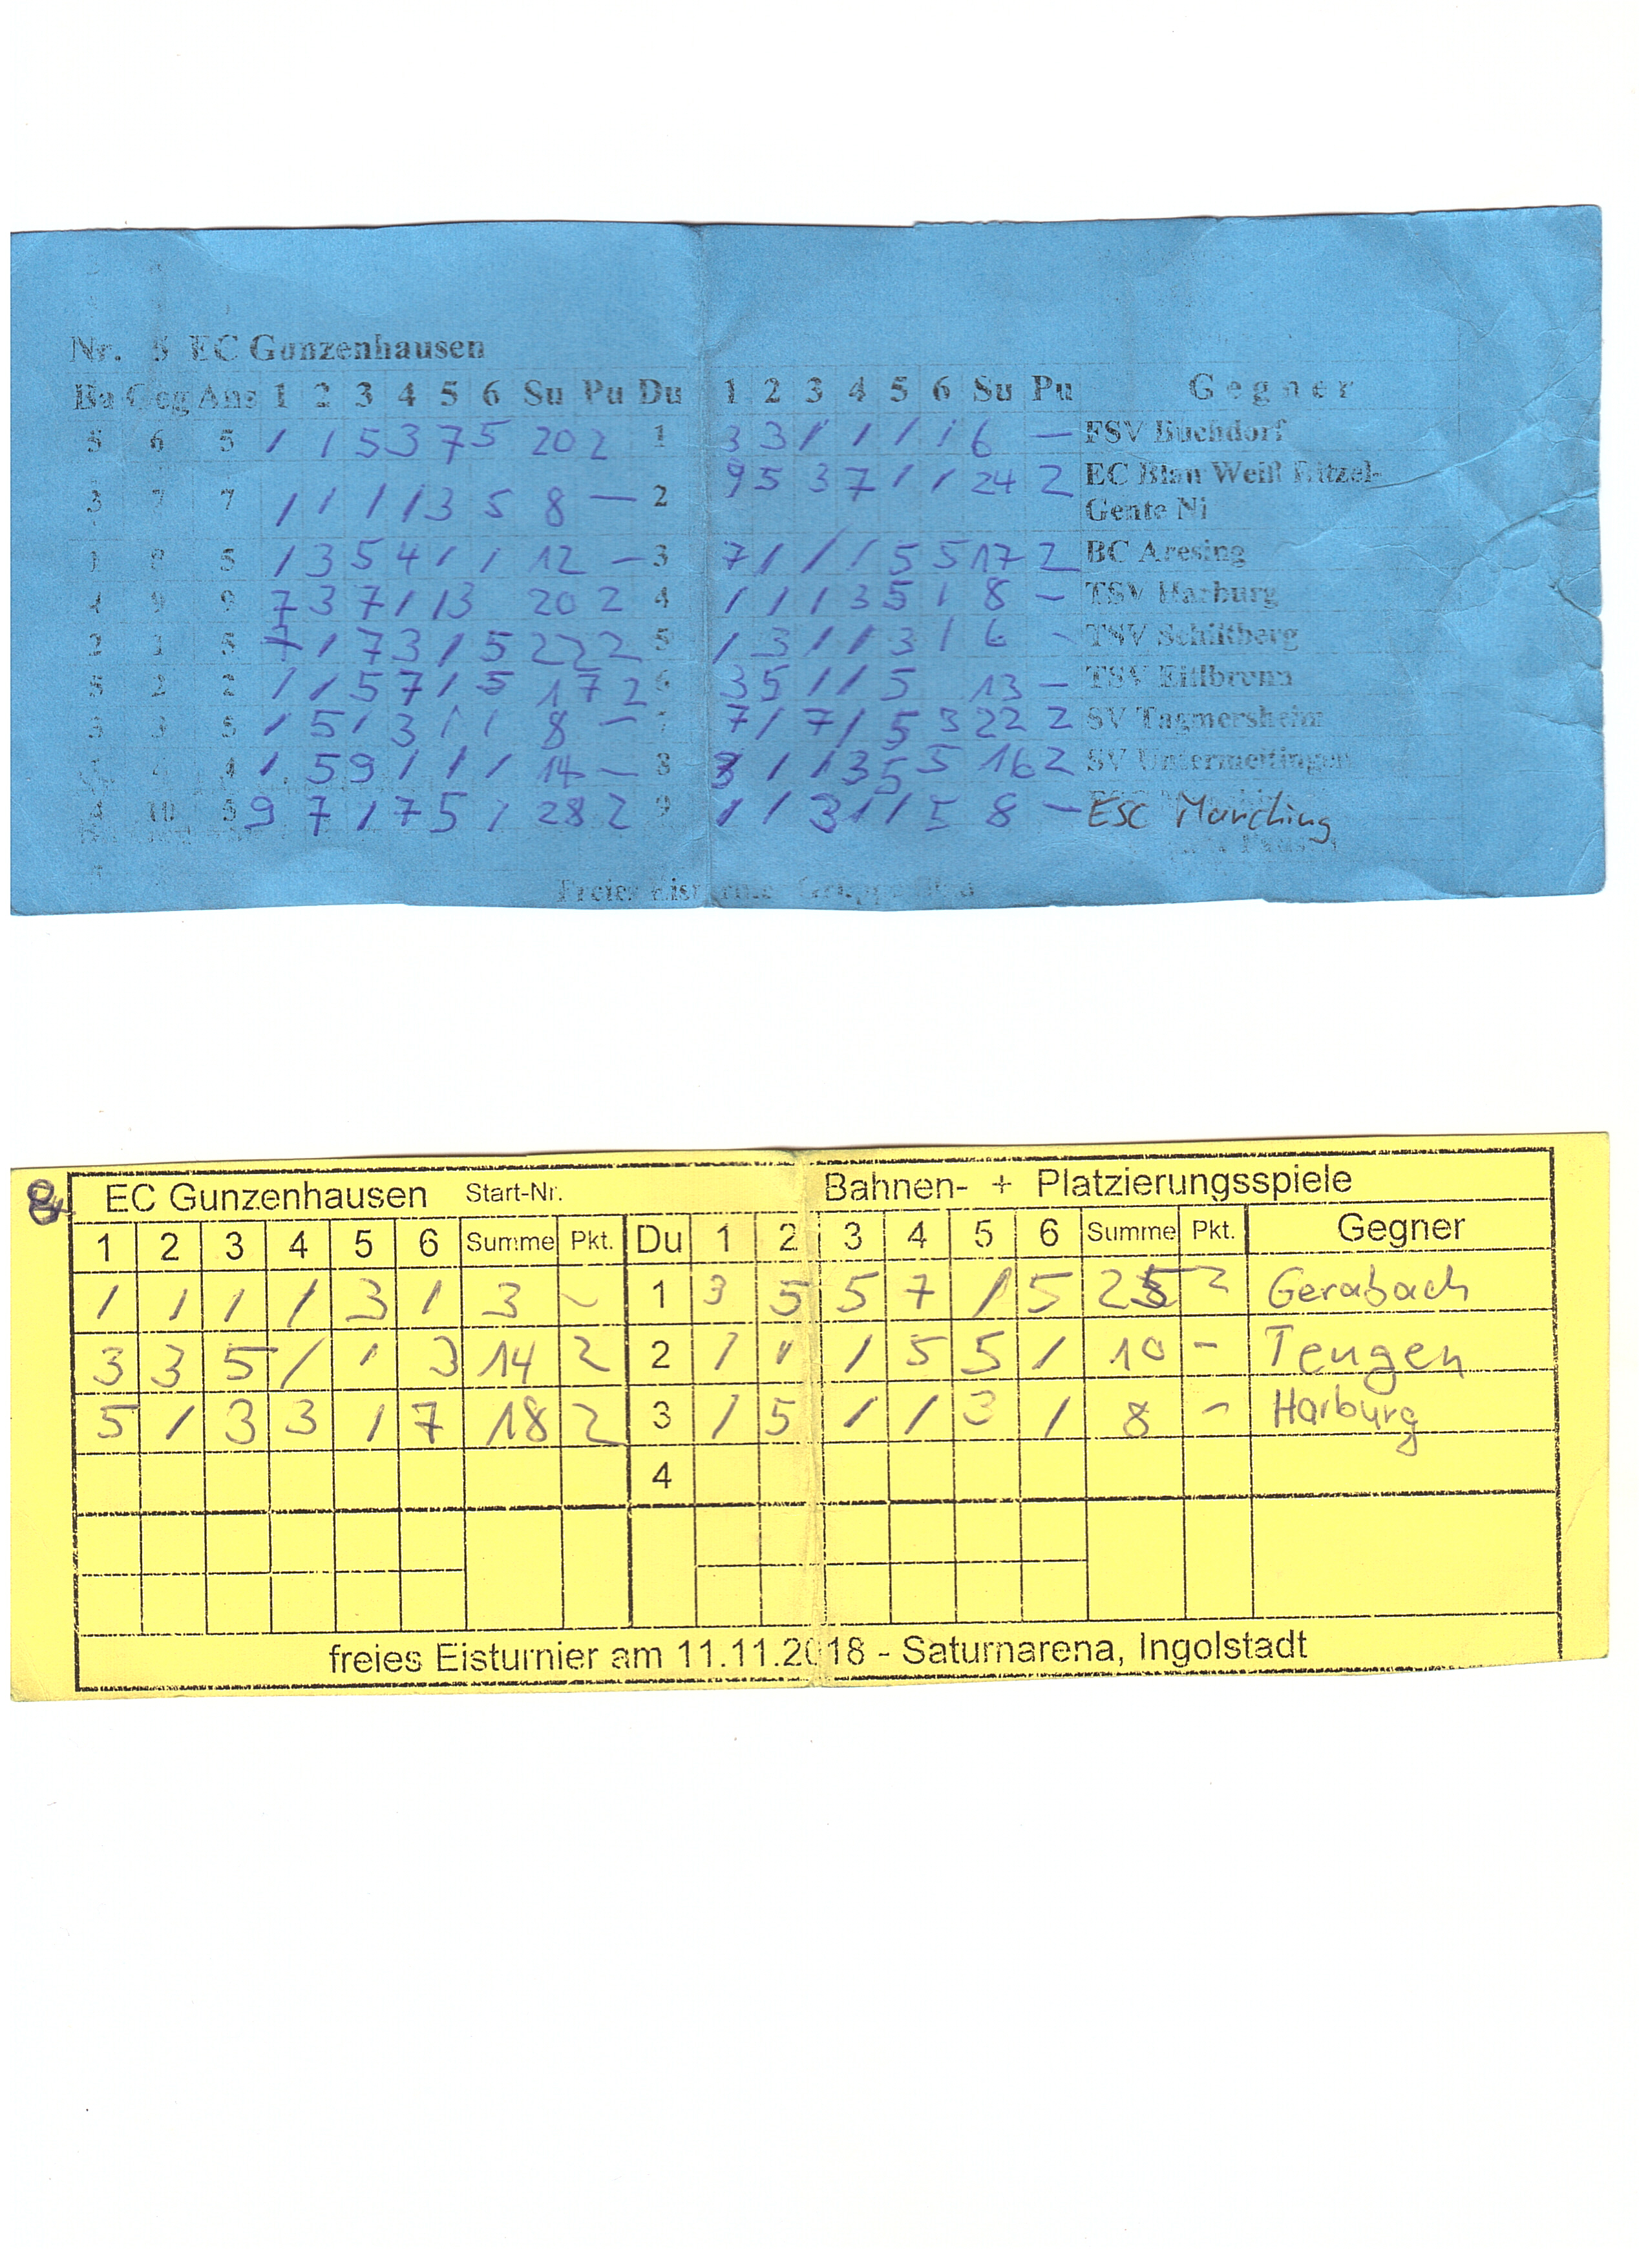 Nr. 5 EC Gunzenhausen
Ba Geg Ans 1 2 3 4 5 6 Su Pu Du 1 2 3 4 5 6 Su Pu Gegner
5 6 5 / / 5 3 7 5 20 2 1 3 3 / / / / 6 — FSV Buchdorf
3 7 7 / / / / 3 5 8 — 2 9 5 3 7 / / 24 2 EC Blau Weiß Ritzel-
Gente Ni
1 8 5 / 3 5 4 / / 12 — 3 7 / / / 5 5 17 2 BC Aresing
4 9 9 7 3 7 / / 3 20 2 4 / / / 3 5 / 8 — TSV Harburg
2 1 5 7 / 7 3 / 5 22 2 5 / 3 / / 3 / 6 - TSV Schiltberg
5 2 2 / / 5 7 / 5 17 2 6 3 5 / / 5 13 — TSV Eitlbrunn
3 3 5 / 5 / 3 / / 8 — 7 7 / 7 / 5 3 22 2 SV Tagmersheim
4 4 / 5 9 / / / 14 — 8 3 / / 3 5 5 16 2 SV Untermeitingen
4 10 5 9 7 / 7 5 / 28 2 9 / / 3 / / 5 8 — ESC Münching
Freies Eisturnier Gruppe Blau
8 EC Gunzenhausen Start-Nr. Bahnen- + Platzierungsspiele
1 2 3 4 5 6 Summe Pkt. Du 1 2 3 4 5 6 Summe Pkt. Gegner
/ / / / 3 / 3 - 1 3 5 5 7 / 5 25 2 Gerabach
3 3 5 / / 3 14 2 2 / / / 5 5 / 10 - Teugen
5 / 3 3 / 7 18 2 3 / 5 / / 3 / 8 - Harburg
4
freies Eisturnier am 11.11.2018 - Saturnarena, Ingolstadt